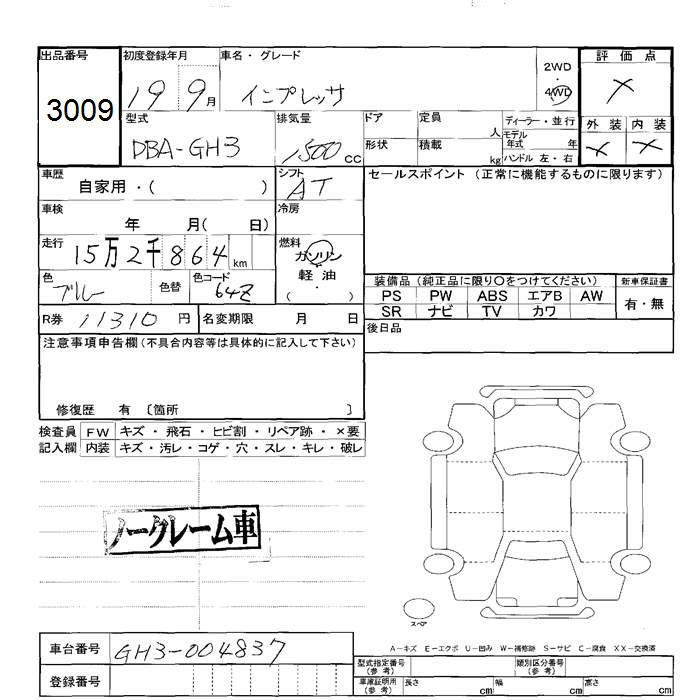 出品番号 初度登録年月 車名・グレード 評価点
3009 19 9月 インプレッサ 2WD・4WD ×
型式 排気量 ドア 定員 人 ディーラー・並行 外装 内装
DBA-GH3 1500 cc 形状 積載 kg モデル年式 年 ハンドル 左・右 × ×
車歴 自家用・( ) シフト AT セールスポイント (正常に機能するものに限ります)
車検 年 月( 日) 冷房
走行 15万2千864km 燃料 ガソリン
軽油
( )
色 ブルー 色替 色コード 64Z
装備品 (純正品に限り○をつけてください) 新車保証書
PS PW ABS エアB AW 有・無
SR ナビ TV カワ
R券 11310円 名変期限 月 日 後日品
注意事項申告欄(不具合内容等は具体的に記入して下さい)
修復歴 有 〔箇所 〕
検査員 FW キズ・飛石・ヒビ割・リペア跡・×要
記入欄 内装 キズ・汚レ・コゲ・穴・スレ・キレ・破レ
ノークレーム車
スペア
A-キズ E-エクボ U-凹み W-補修跡 S-サビ C-腐食 XX-交換済
車台番号 GH3-004837 型式指定番号(参考) 類別区分番号(参考)
登録番号 車庫証明用(参考) 長さ cm 幅 cm 高さ cm